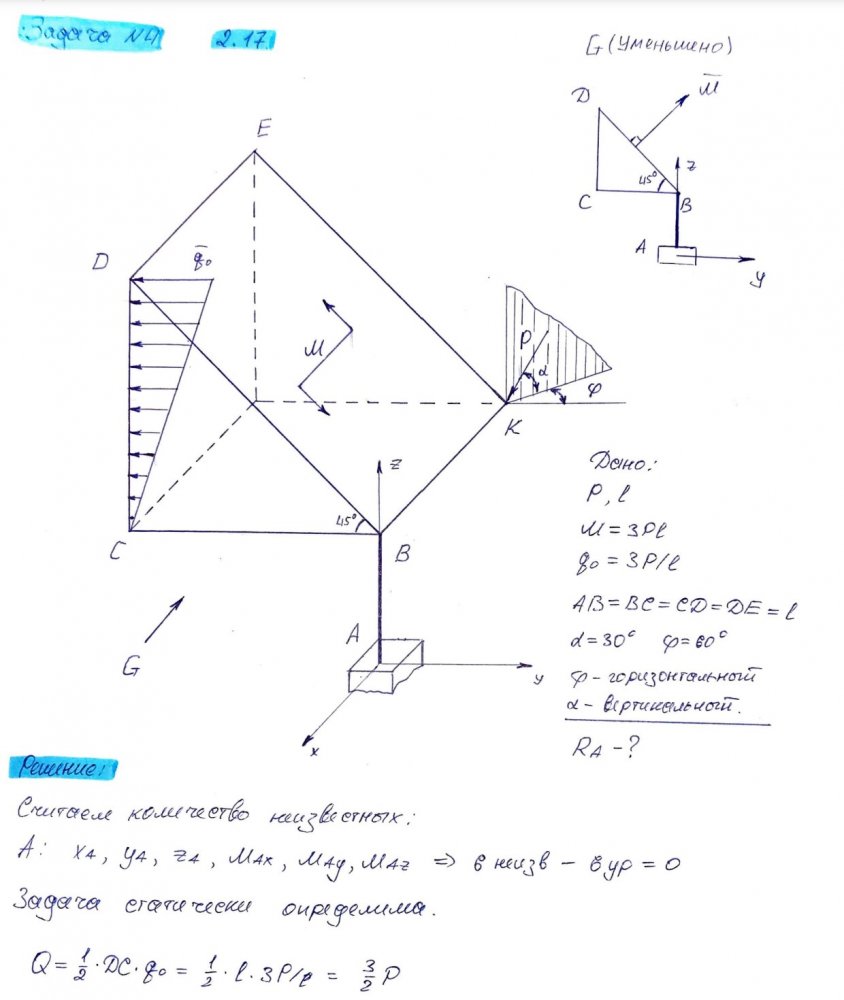 Задача №4 2.17.
G (Уменьшено)
D
M
45°
z
C
B
A
y
E
D
q₀
M
P
α
φ
K
z
45°
C
B
A
G
y
x
Дано:
P, l
M = 3Pl
q₀ = 3P/l
AB = BC = CD = DE = l
α = 30° φ = 60°
φ - горизонтальный
α - вертикальный.
RA - ?
Решение:
Считаем количество неизвестных:
A: XA, YA, ZA, MAX, MAY, MAZ ⇒ 6 неизв - 6 ур = 0
Задача статически определима.
Q = 1/2 · DC · q₀ = 1/2 · l · 3P/l = 3/2 P